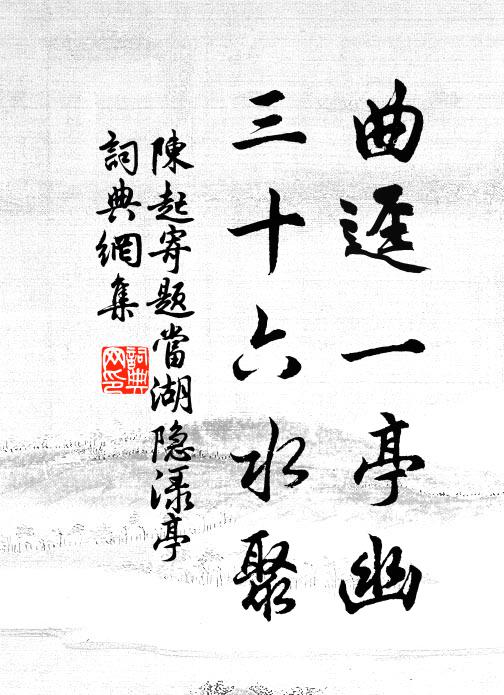 曲逕一亭幽
三十六水聚
陳起寄題當湖隐渌亭
詞典網集
詞典網印